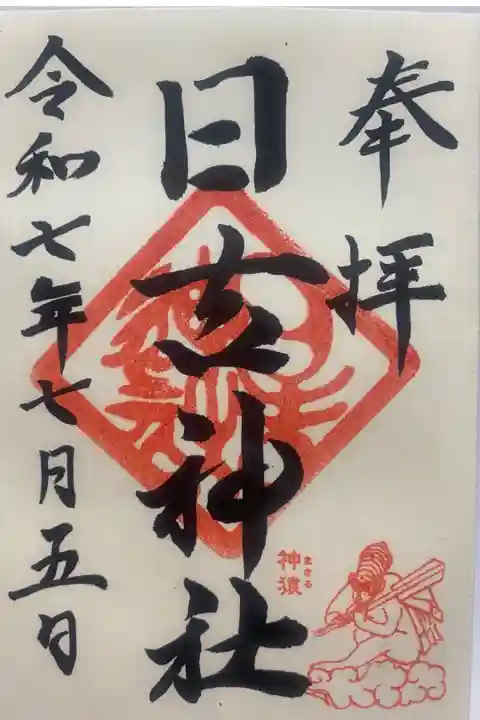 奉拝
日吉神社
令和七年七月五日
まさる
神猿